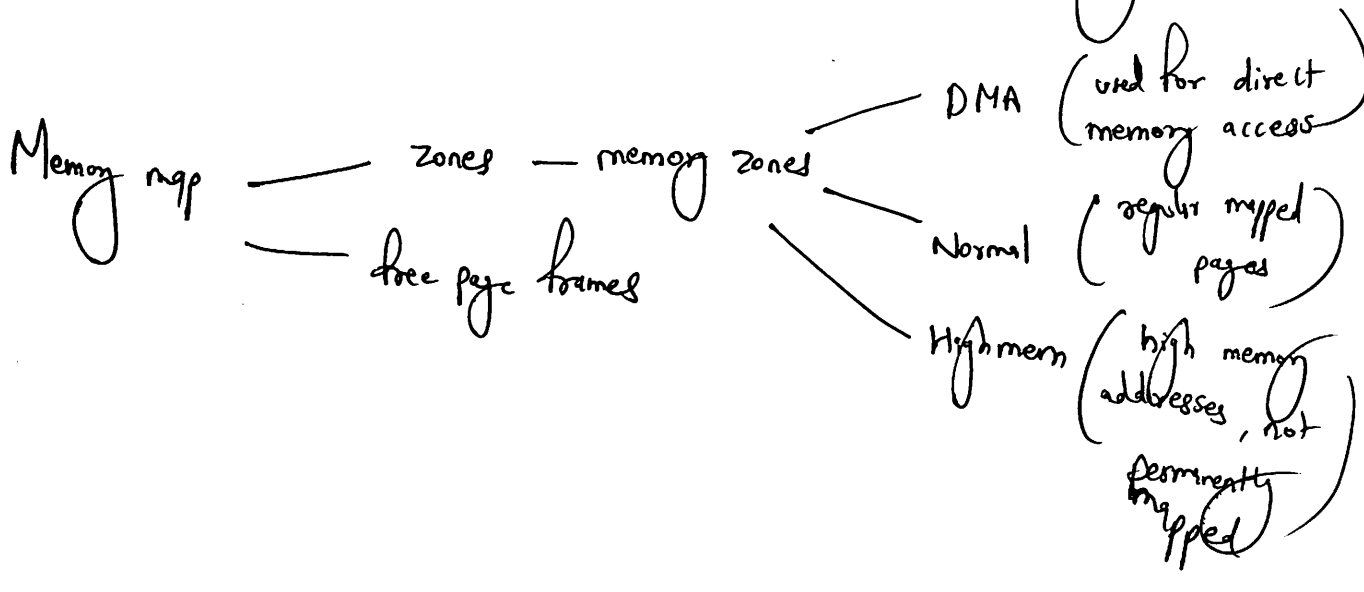 Memory map
zones — memory zones
free page frames
DMA (used for direct
memory access)
Normal (regular mapped
pages)
Highmem (high memory
addresses, not
perminently
mapped)